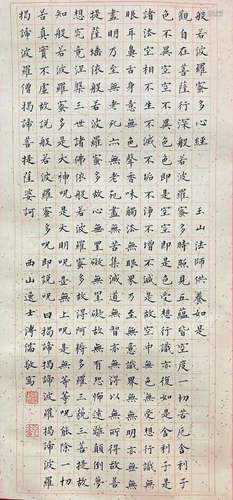 般若波羅蜜多心經 玉山法師供養如是
觀自在菩薩行深般若波羅蜜多時照見五蘊皆空度一切苦厄舍利子
色不異空空不異色色即是空空即是色受想行識亦復如是舍利子是
諸法空相不生不滅不垢不淨不增不減是故空中無色無受想行識無
眼耳鼻舌身意無色聲香味觸法無眼界乃至無意識界無無明亦無無明
盡乃至無老死亦無老死盡無苦集滅道無智亦無得以無所得故菩
提薩埵依般若波羅蜜多故心無罣礙無罣礙故無有恐怖遠離顛倒夢
想究竟涅槃三世諸佛依般若波羅蜜多故得阿耨多羅三藐三菩提故
知般若波羅蜜多是大神呪是大明呪是無上呪是無等等呪能除一切
苦真實不虛故說般若波羅蜜多呪即說呪曰揭諦揭諦波羅
揭諦波羅僧揭諦菩提薩婆訶
西山逸士溥儒敬寫